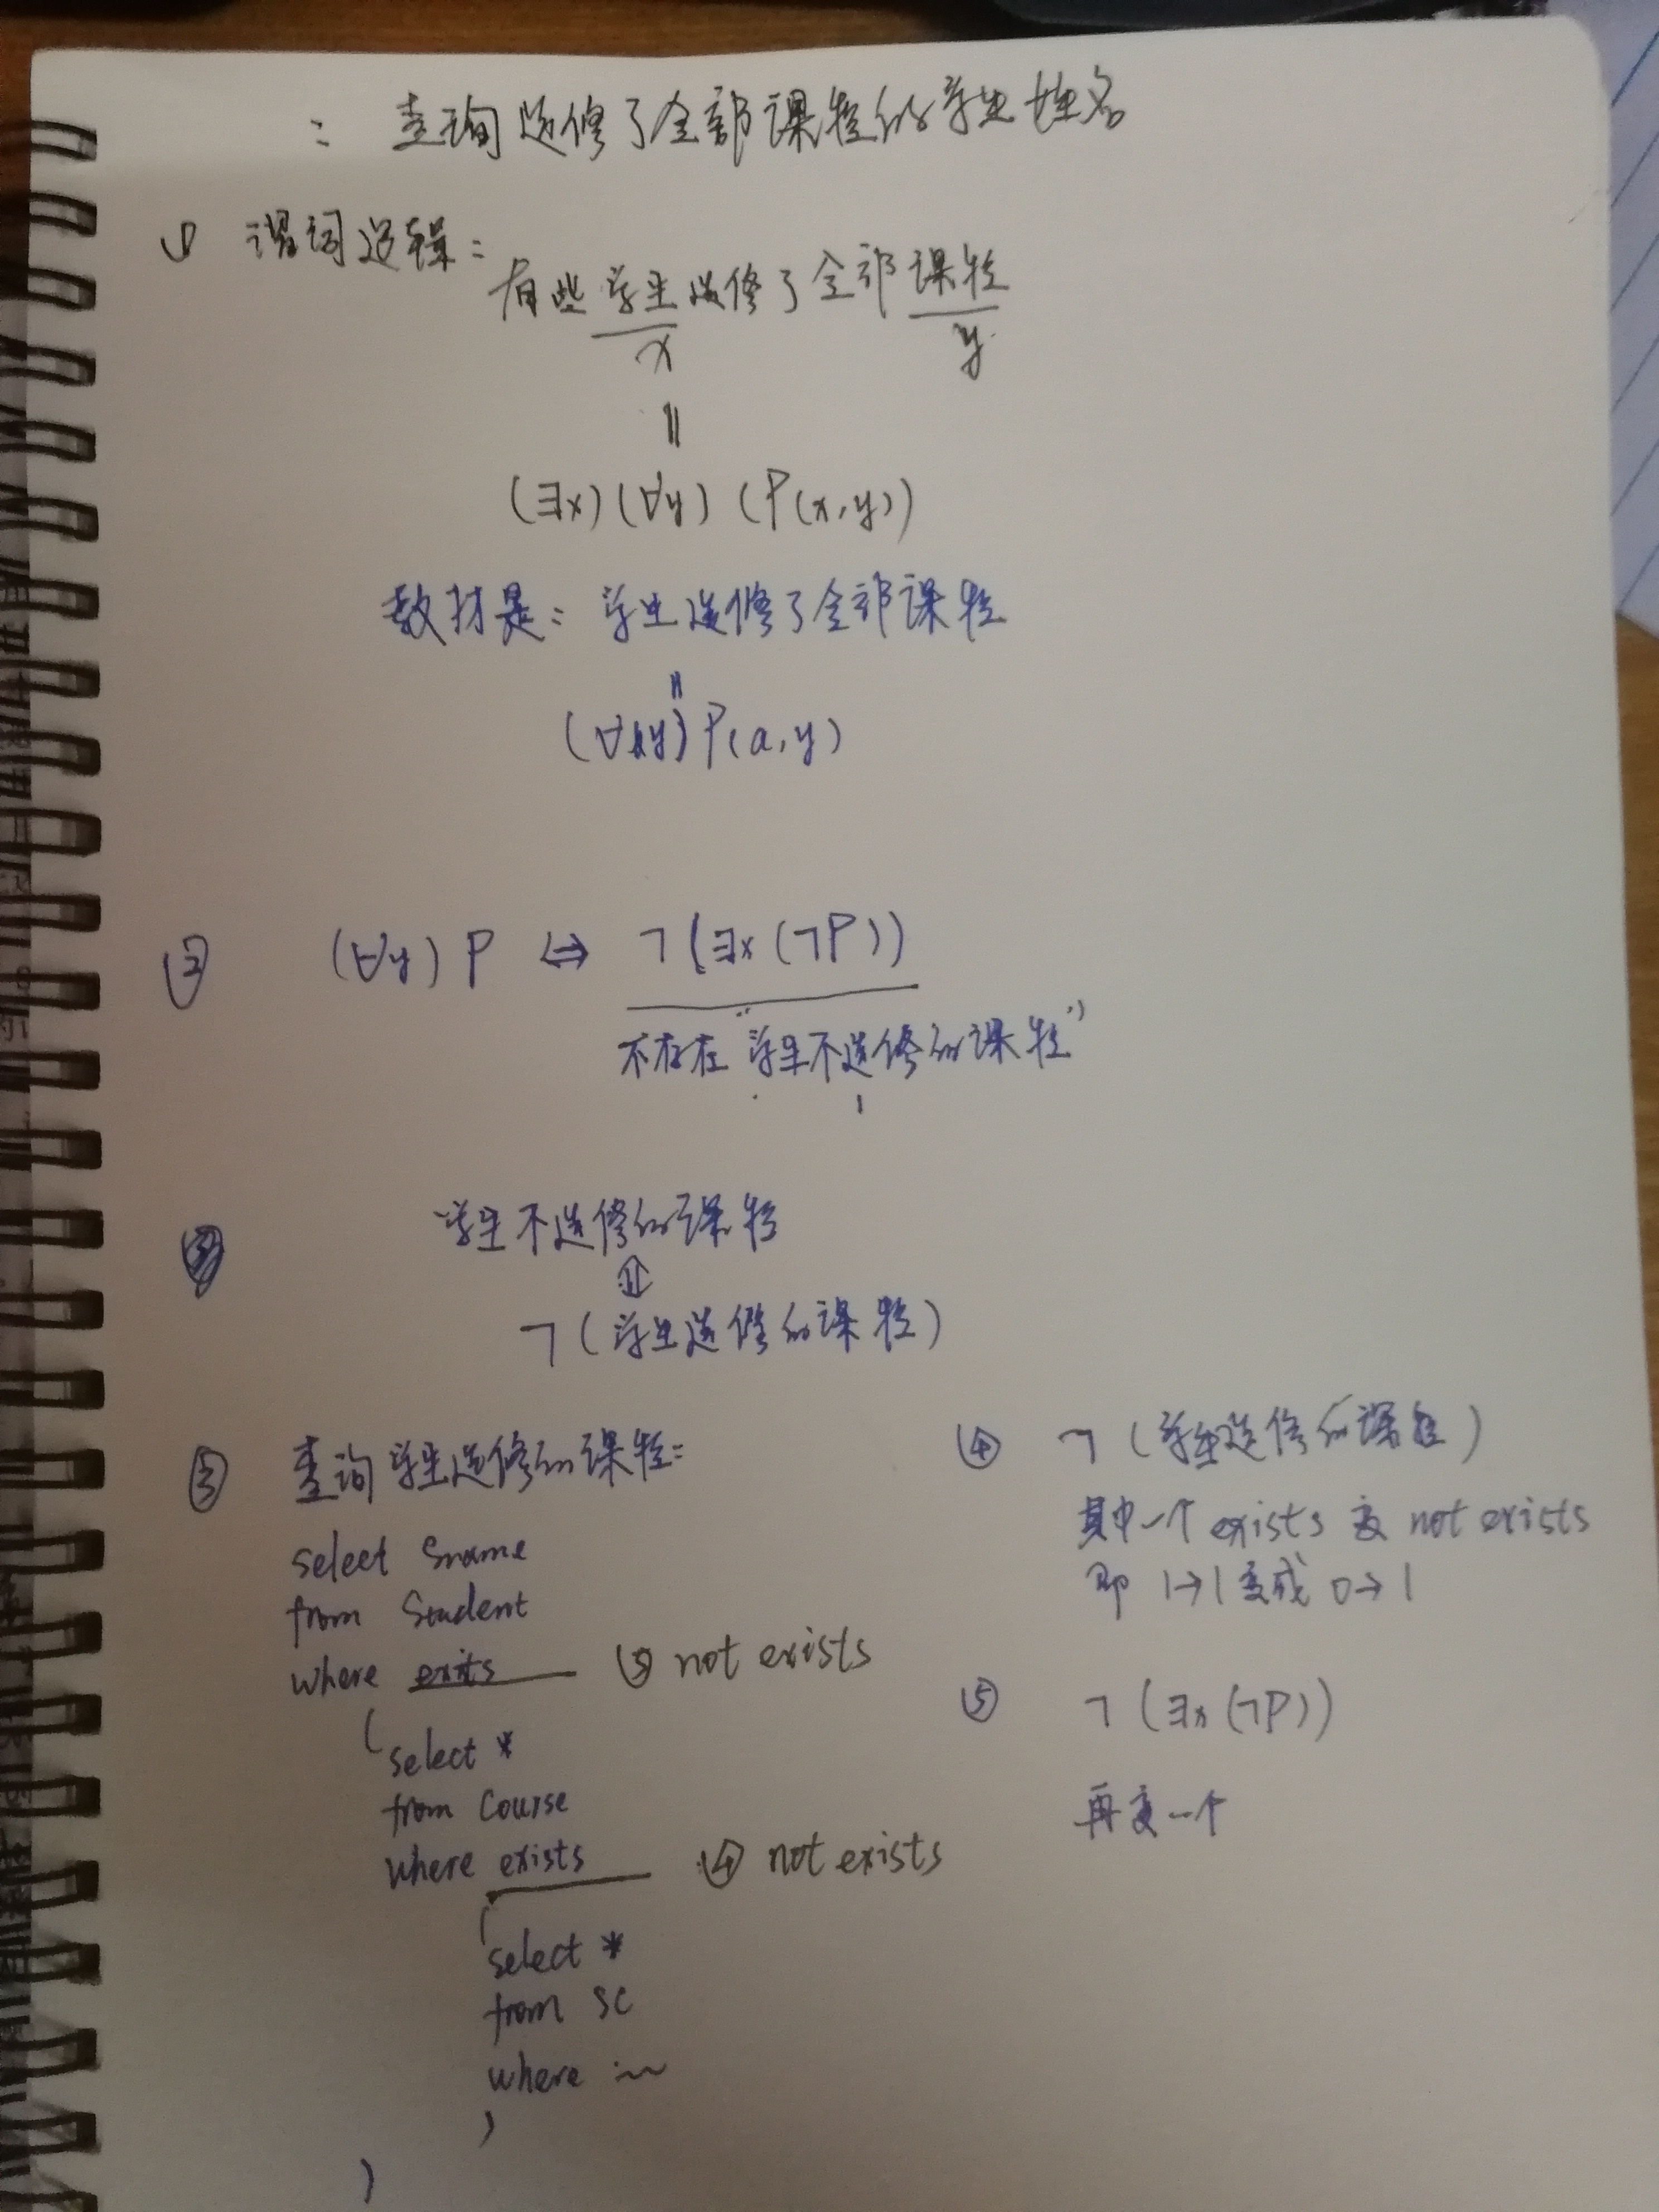 : 查询选修了全部课程的学生姓名
① 谓词逻辑:
有些学生选修了全部课程
x y
||
(∃x)(∀y) (P(x,y))
教材是: 学生选修了全部课程
||
(∀y) P(a,y)
② (∀y) P ⇔ ¬(∃x(¬P))
不存在"学生不选修的课程"
学生不选修的课程
⇕
¬(学生选修的课程)
③ 查询学生选修的课程:
select Sname
from Student
where exits ⑤ not exists
(select *
from Course
where exists ④ not exists
(select *
from SC
where
)
)
④ ¬(学生选修的课程)
其中一个 exists 变 not exists
即 1→1 变成 0→1
⑤ ¬(∃x(¬P))
再变一个